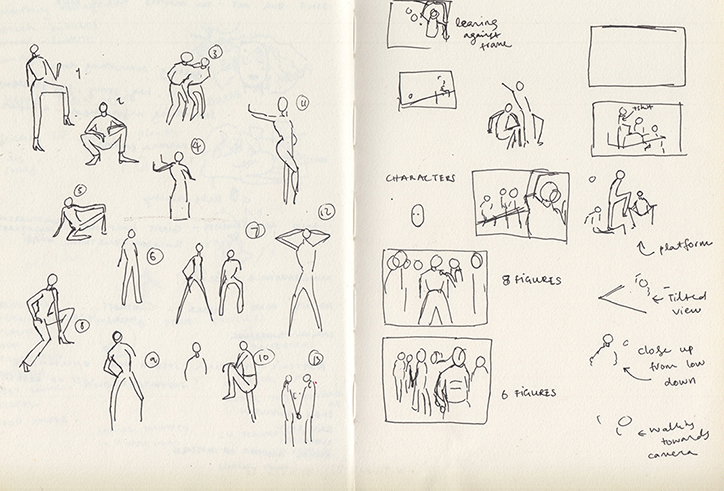 1
2
3
11
4
5
12
6
7
8
9
10
13
leaning
against
frame
CHARACTERS
↑ platform
8 FIGURES
← Tilted
view
close up
from low
down
6 FIGURES
← walking
towards
camera